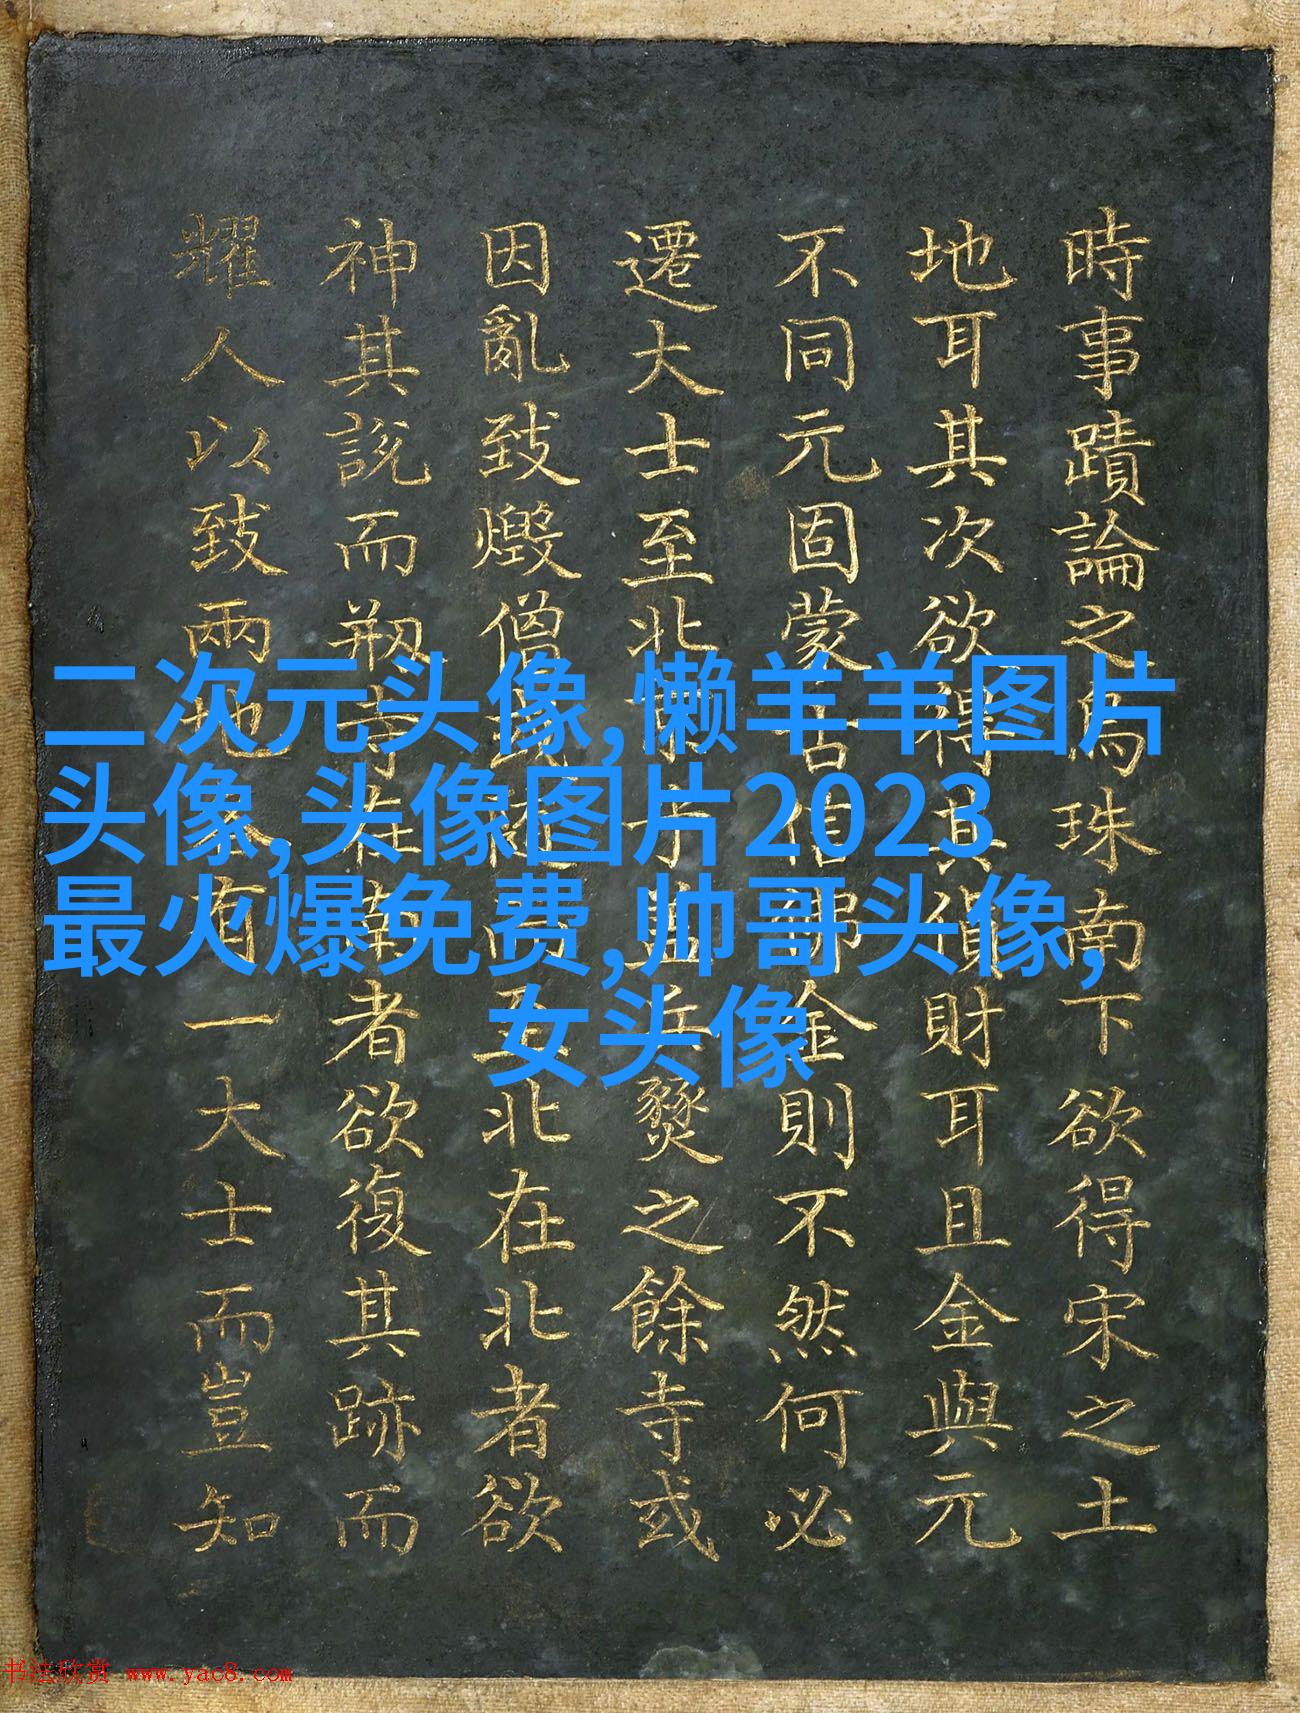 二次元头像,懒羊羊图片
头像,头像图片2023
最火爆免费,帅哥头像,
女头像
時事蹟論之烏珠南下欲得宋之土
地耳其次欲得其貨財耳且金與元
不同元固蒙古佛金則不然何必
遷大士至北于兵燹之餘寺或
因亂致燬僧或而北在北者欲
神其說而刱寺在南者欲復其跡而
耀人以致兩地各有一大士而豈知
书法欣赏 www.yac8.com